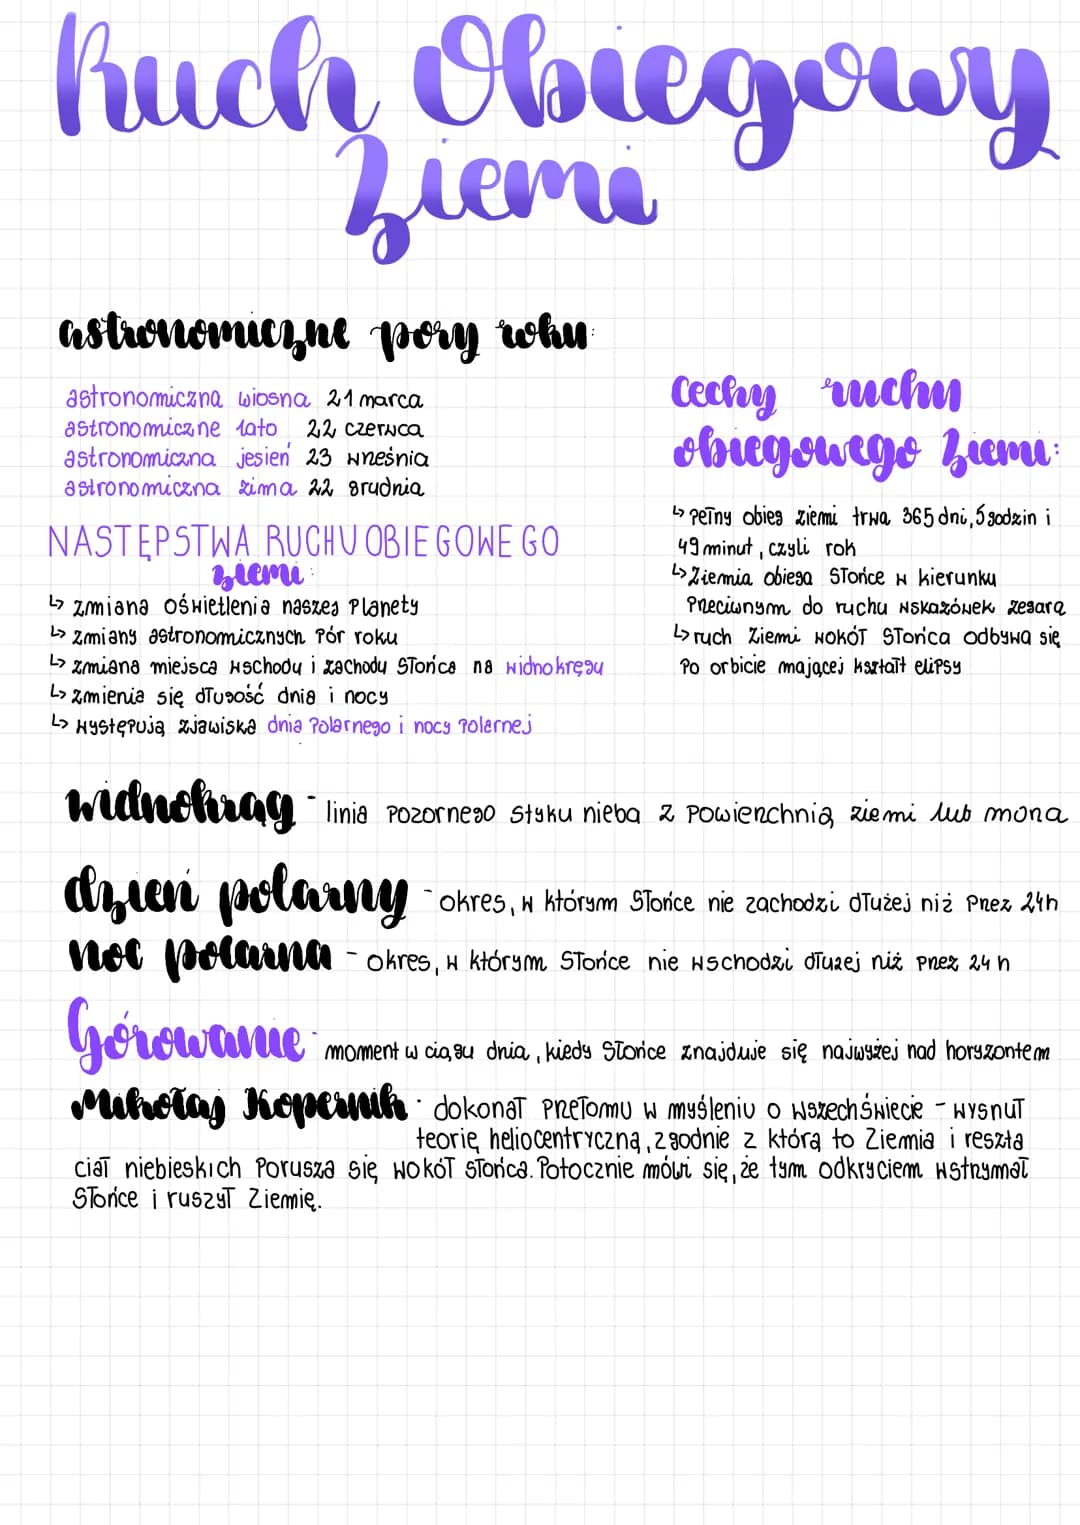 Ruch Obiegowy
Ziemi
astronomiczne pory roku:
astronomiczna wiosna 21 marca
astronomiczne lato 22 czerwca
astronomiczna jesień 23 września
astronomiczna zima 22 grudnia
NASTĘPSTWA RUCHU OBIEGOWEGO
ziemi:
↳ zmiana oświetlenia naszej Planety
↳ zmiany astronomicznych Pór roku
↳ zmiana miejsca wschodu i zachodu Słońca na widnokręgu
↳ zmienia się długość dnia i nocy
↳ występują zjawiska dnia Polarnego i nocy Polarnej
Cechy ruchu
obiegowego Ziemi:
↳ pełny obieg ziemi trwa 365 dni, 5 godzin i
49 minut, czyli rok
↳ Ziemia obiega Słońce w kierunku
Przeciwnym do ruchu wskazówek zegara
↳ ruch Ziemi wokół Słońca odbywa się
Po orbicie mającej kształt elipsy
widnokrąg - linia pozornego styku nieba z powierzchnią ziemi lub morza
dzień polarny - okres, w którym Słońce nie zachodzi dłużej niż Przez 24h
noc polarna - okres, w którym Słońce nie wschodzi dłużej niż przez 24 h
Górowanie - moment w ciągu dnia, kiedy Słońce znajduje się najwyżej nad horyzontem
Mikołaj Kopernik - dokonał przełomu w myśleniu o wszechświecie - wysnuł
teorię heliocentryczną, zgodnie z którą to Ziemia i reszta
ciał niebieskich Porusza się wokół Słońca. Potocznie mówi się, że tym odkryciem wstrzymał
Słońce i ruszył Ziemię.